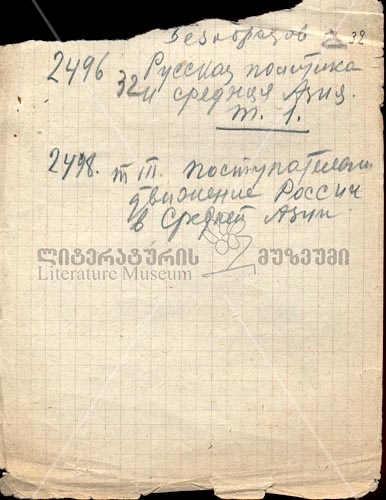 Безобразов 32
2496 32 Русская политика
и средняя Азия.
Т. 1.
2498. т III. поступателен
движение России
в Средней Азии
ლიტერატურის მუზეუმი
Literature Museum